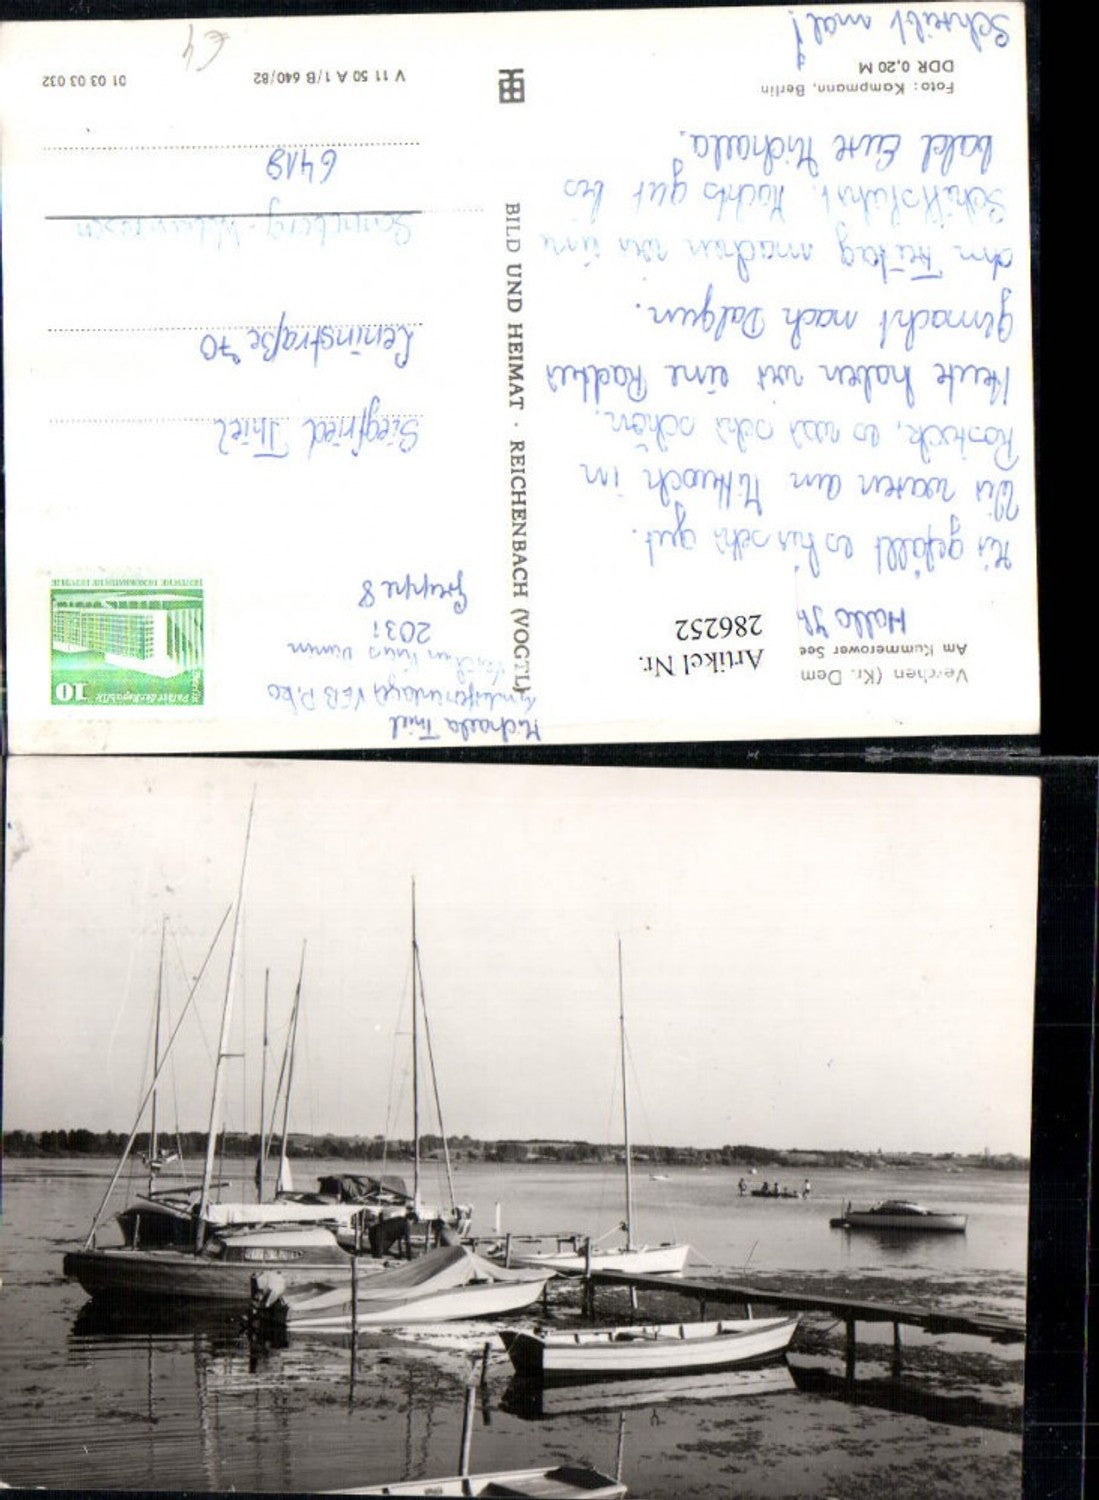 Verchen (Kr. Dem
Am Kummerower See
Hallo Ihr
Mir gefällt es hir sehr gut.
Wir waren am Mittwoch in
Rostock, es war sehr schön.
Heute haben wir eine Radtur
gemacht nach Dargun.
Am Freitag machen wir eine
Schiffsfahrt. Machts gut bis
bald Eure Michaela.
Foto: Kampmann, Berlin
DDR 0,20 M
Schreibt mal!
Artikel Nr.
286252
BILD UND HEIMAT · REICHENBACH (VOGTL)
Michaela Thiel
VEB
2031
Gruppe 8
Palast der Republik
Berlin
10
DEUTSCHE DEMOKRATISCHE REPUBLIK
Siegfried Thiel
Leninstraße 70
Sonneberg -
6418
V 11 50 A 1/B 640/82
01 03 03 032
€4